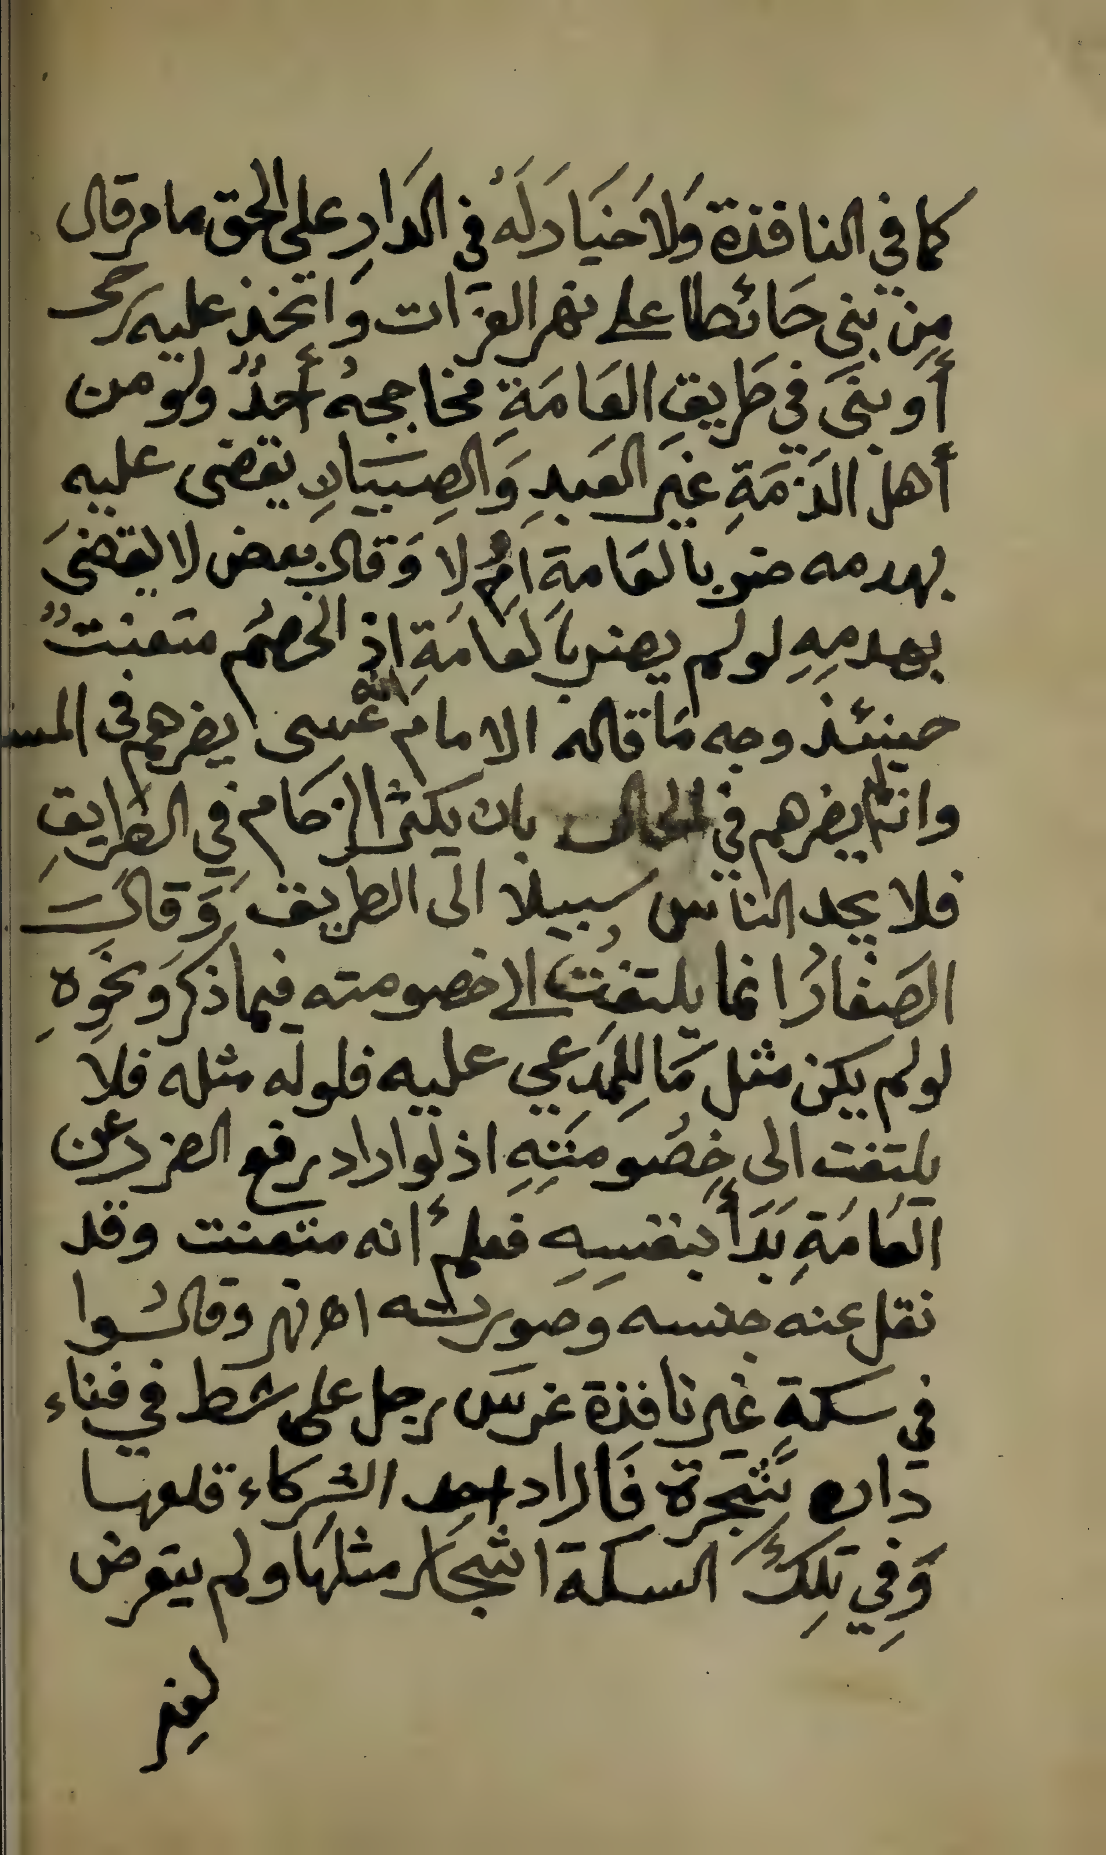 كما في النافذة وَلاَ خيَا دَلَهُ في الدَارِ على الحق مامر قال
مِن بنى حَائطا على نهر الفرَات وَاتخذ عليه رحى
أو بنىَ في طَريقِ العَامَةِ فخاججهُ أحدٌ ولو من
أهل الذمَةِ غيَر العَبدِ وَالصِبيَانِ يقضى عليه
بهدمه ضر بالعَامةِ امْ لا وَقال بعض لا يقضىَ
بهدمِهِ لو لم يضر باَلعَامَةِ اذ الخصمُ متعنتٌ
حينئذ وجه مَا قاله الامام عَسى انه يضرهم في المسـ
وانما يضرهم في الحال بان يكثر الزحَام في الطرَايقِ
فلا يجد الناس سبيلا الى الطريق وَقالَ
الصَفارُ انما يلتفتُ الى خصومته فيما ذكر وَنحَوِهِ
لو لم يكن مثل مَا للمدَعي عليه فلو له مثله فلا
يلتفت الى خِصُومَتِهِ اذ لو اراد رفع الضرر عن
العَامَةِ بَدَأ بنفسِهِ فعلمَ انه متعنت وقد
نقل عنه جنسه وَصورته اه نهر وقالُوا
في سكةٍ غير نافذة غرسَ رجل على شط في فناء
دَاره شَجَرة فَاراد احد الشركاء قلعها
وَفِي تلِكَ السكة اشجَار مثلهَا ولم يتعرض
لغير